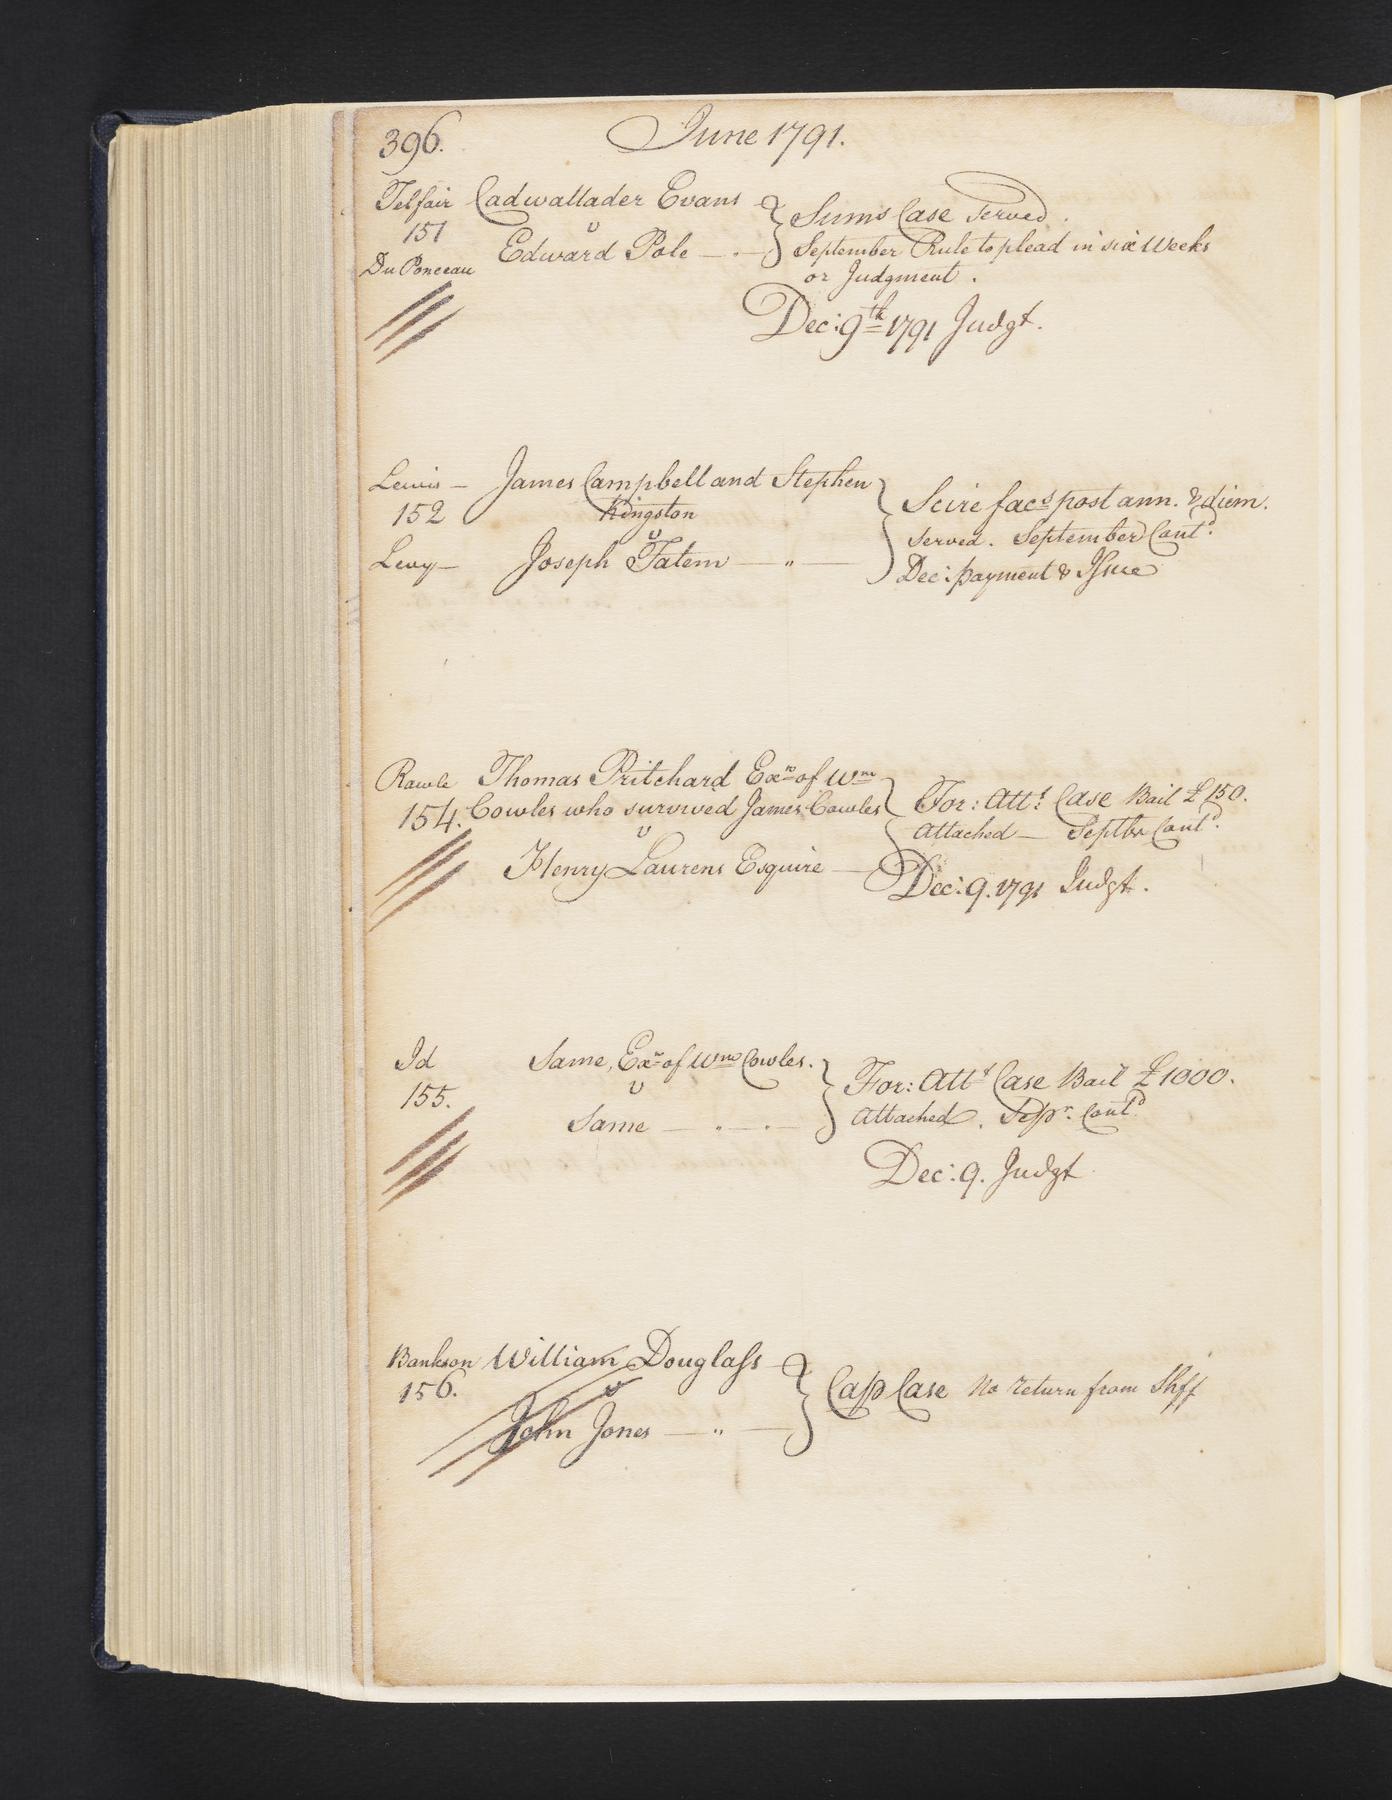 396. June 1791.
Telfair Cadwallader Evans
151 v
Du Ponceau Edward Pole
Sums Case Served.
September Rule to plead in six Weeks
or Judgment.
Dec: 9th 1791 Judgt.
Lewis — James Campbell and Stephen
152 Kingston
v
Levy — Joseph Tatem — " —
Scire facs post ann. & diem.
Served. September Contd.
Dec: payment & Issue
Rawle Thomas Pritchard Exr of Wm
154. Cowles who survived James Cowles
v
Henry Laurens Esquire —
For: Atts Case Bail £150.
Attached — Septbr Contd.
Dec: 9. 1791 Judgt.
Id Same, Exr of Wm Cowles.
155. v
Same
For: Atts Case Bail £1000.
Attached. Sepr. Contd.
Dec: 9. Judgt
Bankson William Douglass
156. v
John Jones — " —
Cap Case No return from Shff